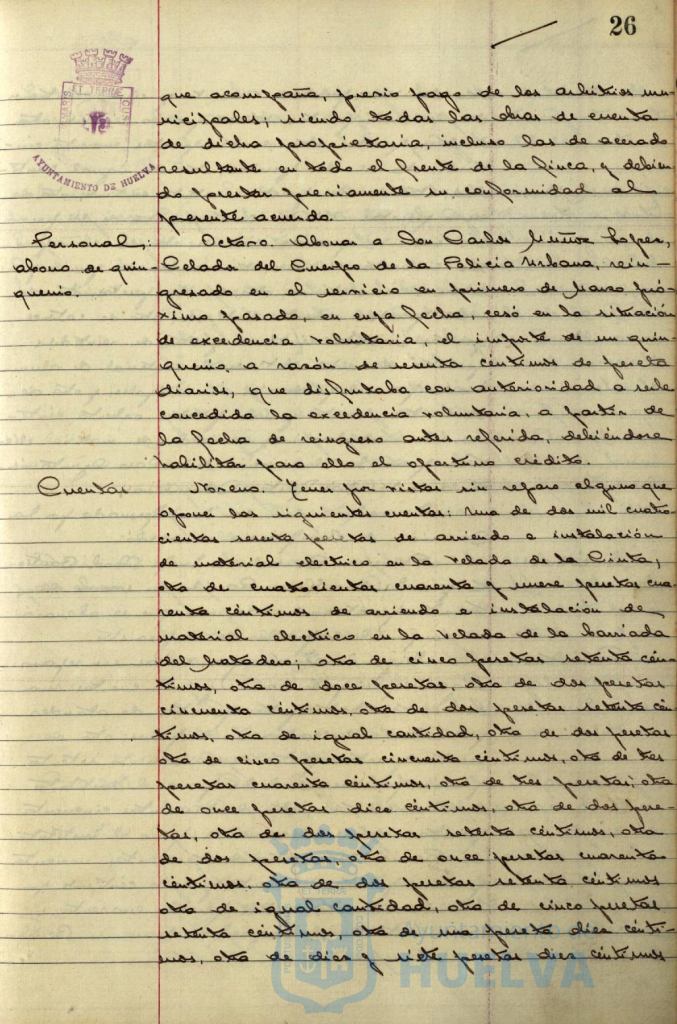 26
PORTUS MARIS ET TERRAE CUSTODIA
AYUNTAMIENTO DE HUELVA
que acompaña, previo pago de los arbitrios mu-
nicipales; siendo todas las obras de cuenta
de dicha propietaria, incluso las de acerado
resultante en todo el frente de la finca, y debien-
do prestar previamente su conformidad al
presente acuerdo.
Personal;
abono de quin-
quenio.
Octavo. Abonar a Don Carlos Muñoz Lopez,
Celador del Cuerpo de la Policia Urbana, rein-
gresado en el servicio en primero de Marzo pró-
ximo pasado, en cuya fecha, cesó en la situación
de excedencia voluntaria, el importe de un quin-
quenio, a razón de sesenta céntimos de peseta
diarios, que disfrutaba con anterioridad a serle
concedida la excedencia voluntaria, a partir de
la fecha de reingreso antes referida, debiéndose
habilitar para ello el oportuno crédito.
Cuentas
Noveno. Tener por vistas sin reparo alguno que
oponer las siguientes cuentas: una de dos mil cuatro-
cientas sesenta pesetas de arriendo e instalación
de material electrico en la Velada de la Cinta;
otra de cuatrocientas cuarenta y nueve pesetas cua-
renta céntimos de arriendo e instalación de
material electrico en la Velada de la barriada
del Matadero; otra de cinco pesetas setenta cén-
timos, otra de doce pesetas, otra de dos pesetas
cincuenta céntimos, otra de dos pesetas setenta cén-
timos, otra de igual cantidad, otra de dos pesetas
otra de cinco pesetas cincuenta céntimos, otra de tres
pesetas cuarenta céntimos, otra de tres pesetas; otra
de once pesetas diez céntimos, otra de dos pese-
tas, otra de dos pesetas setenta céntimos, otra
de dos pesetas, otra de once pesetas cuarenta
céntimos, otra de dos pesetas setenta céntimos
otra de igual cantidad, otra de cinco pesetas
setenta céntimos, otra de una peseta diez cénti-
mos, otra de diez y siete pesetas diez céntimos
HUELVA